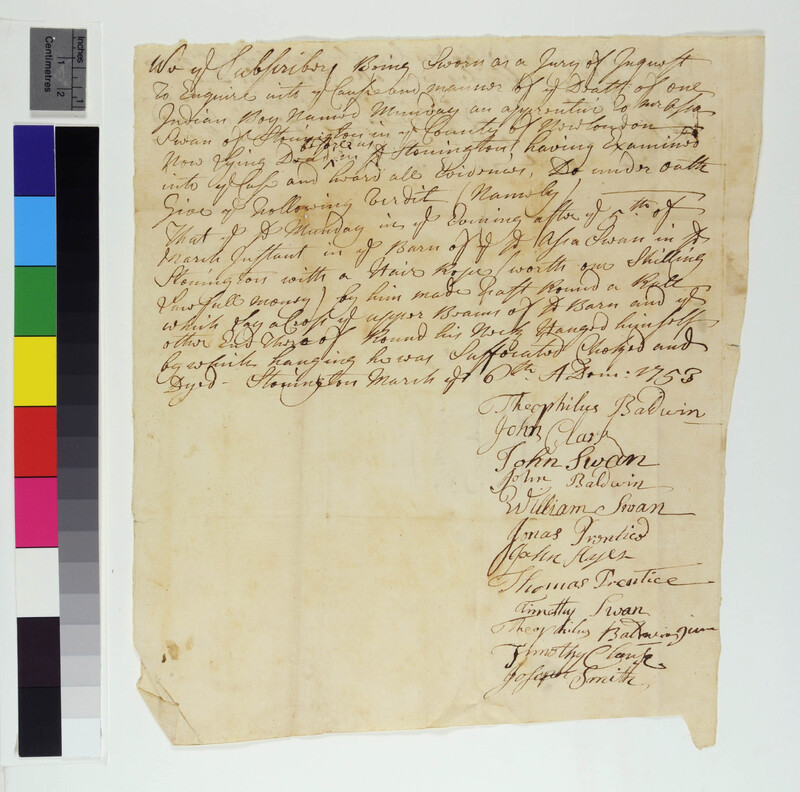 Inches
Centimetres
1
2
We ye Subscribers Being Sworn as a Jury of Inquest
To Enquire into ye Cause and manner of ye Death of one
Indian Boy Named Munday an apprentice to Mr Asa
Swan of Stonington in ye County of New London
before us
Now Lying Dead in sd Stonington, having Examined
into ye Case and heard all Evidences, Do under oath
Give ye following Verdit (Namely)
That ye sd Munday in ye Evening after ye 5th of
March Instant in ye Barn of ye sd Asa Swan in sd
Stonington with a Hair Rope (worth one Shilling
Lawfull money) by him made fast Round a Rail
which lay aCross ye upper Beams of sd Barn and ye
other End thereof Round his Neck Hanged himself
by which hanging he was Suffocated Choked and
Dyed - Stonington March ye 6th A Dom: 1753
Theophilus Baldwin
John Clark
John Swan
John Baldwin
William Swan
Jonas Prentice
John Ayer
Thomas Prentice
Timothy Swan
Theophilus Baldwin Jun
Timothy
Joseph Smith